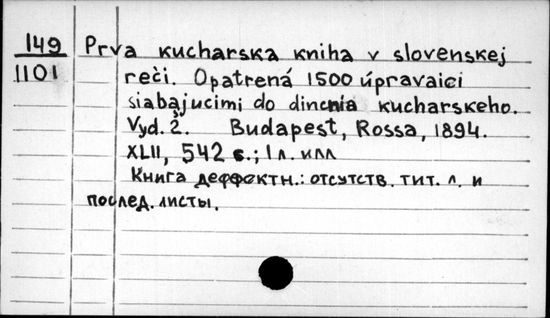 149 Prva kucharska kniha v slovenskej
1101 reči. Opatrená 1500 úpravaici
siabajucimi do dincnia kucharskeho.
Vyd. 2. Budapest, Rossa, 1894.
XLII, 542 с.; 1 л. илл
Книга деффектн.: отсутств. тит. л. и
послед. листы.